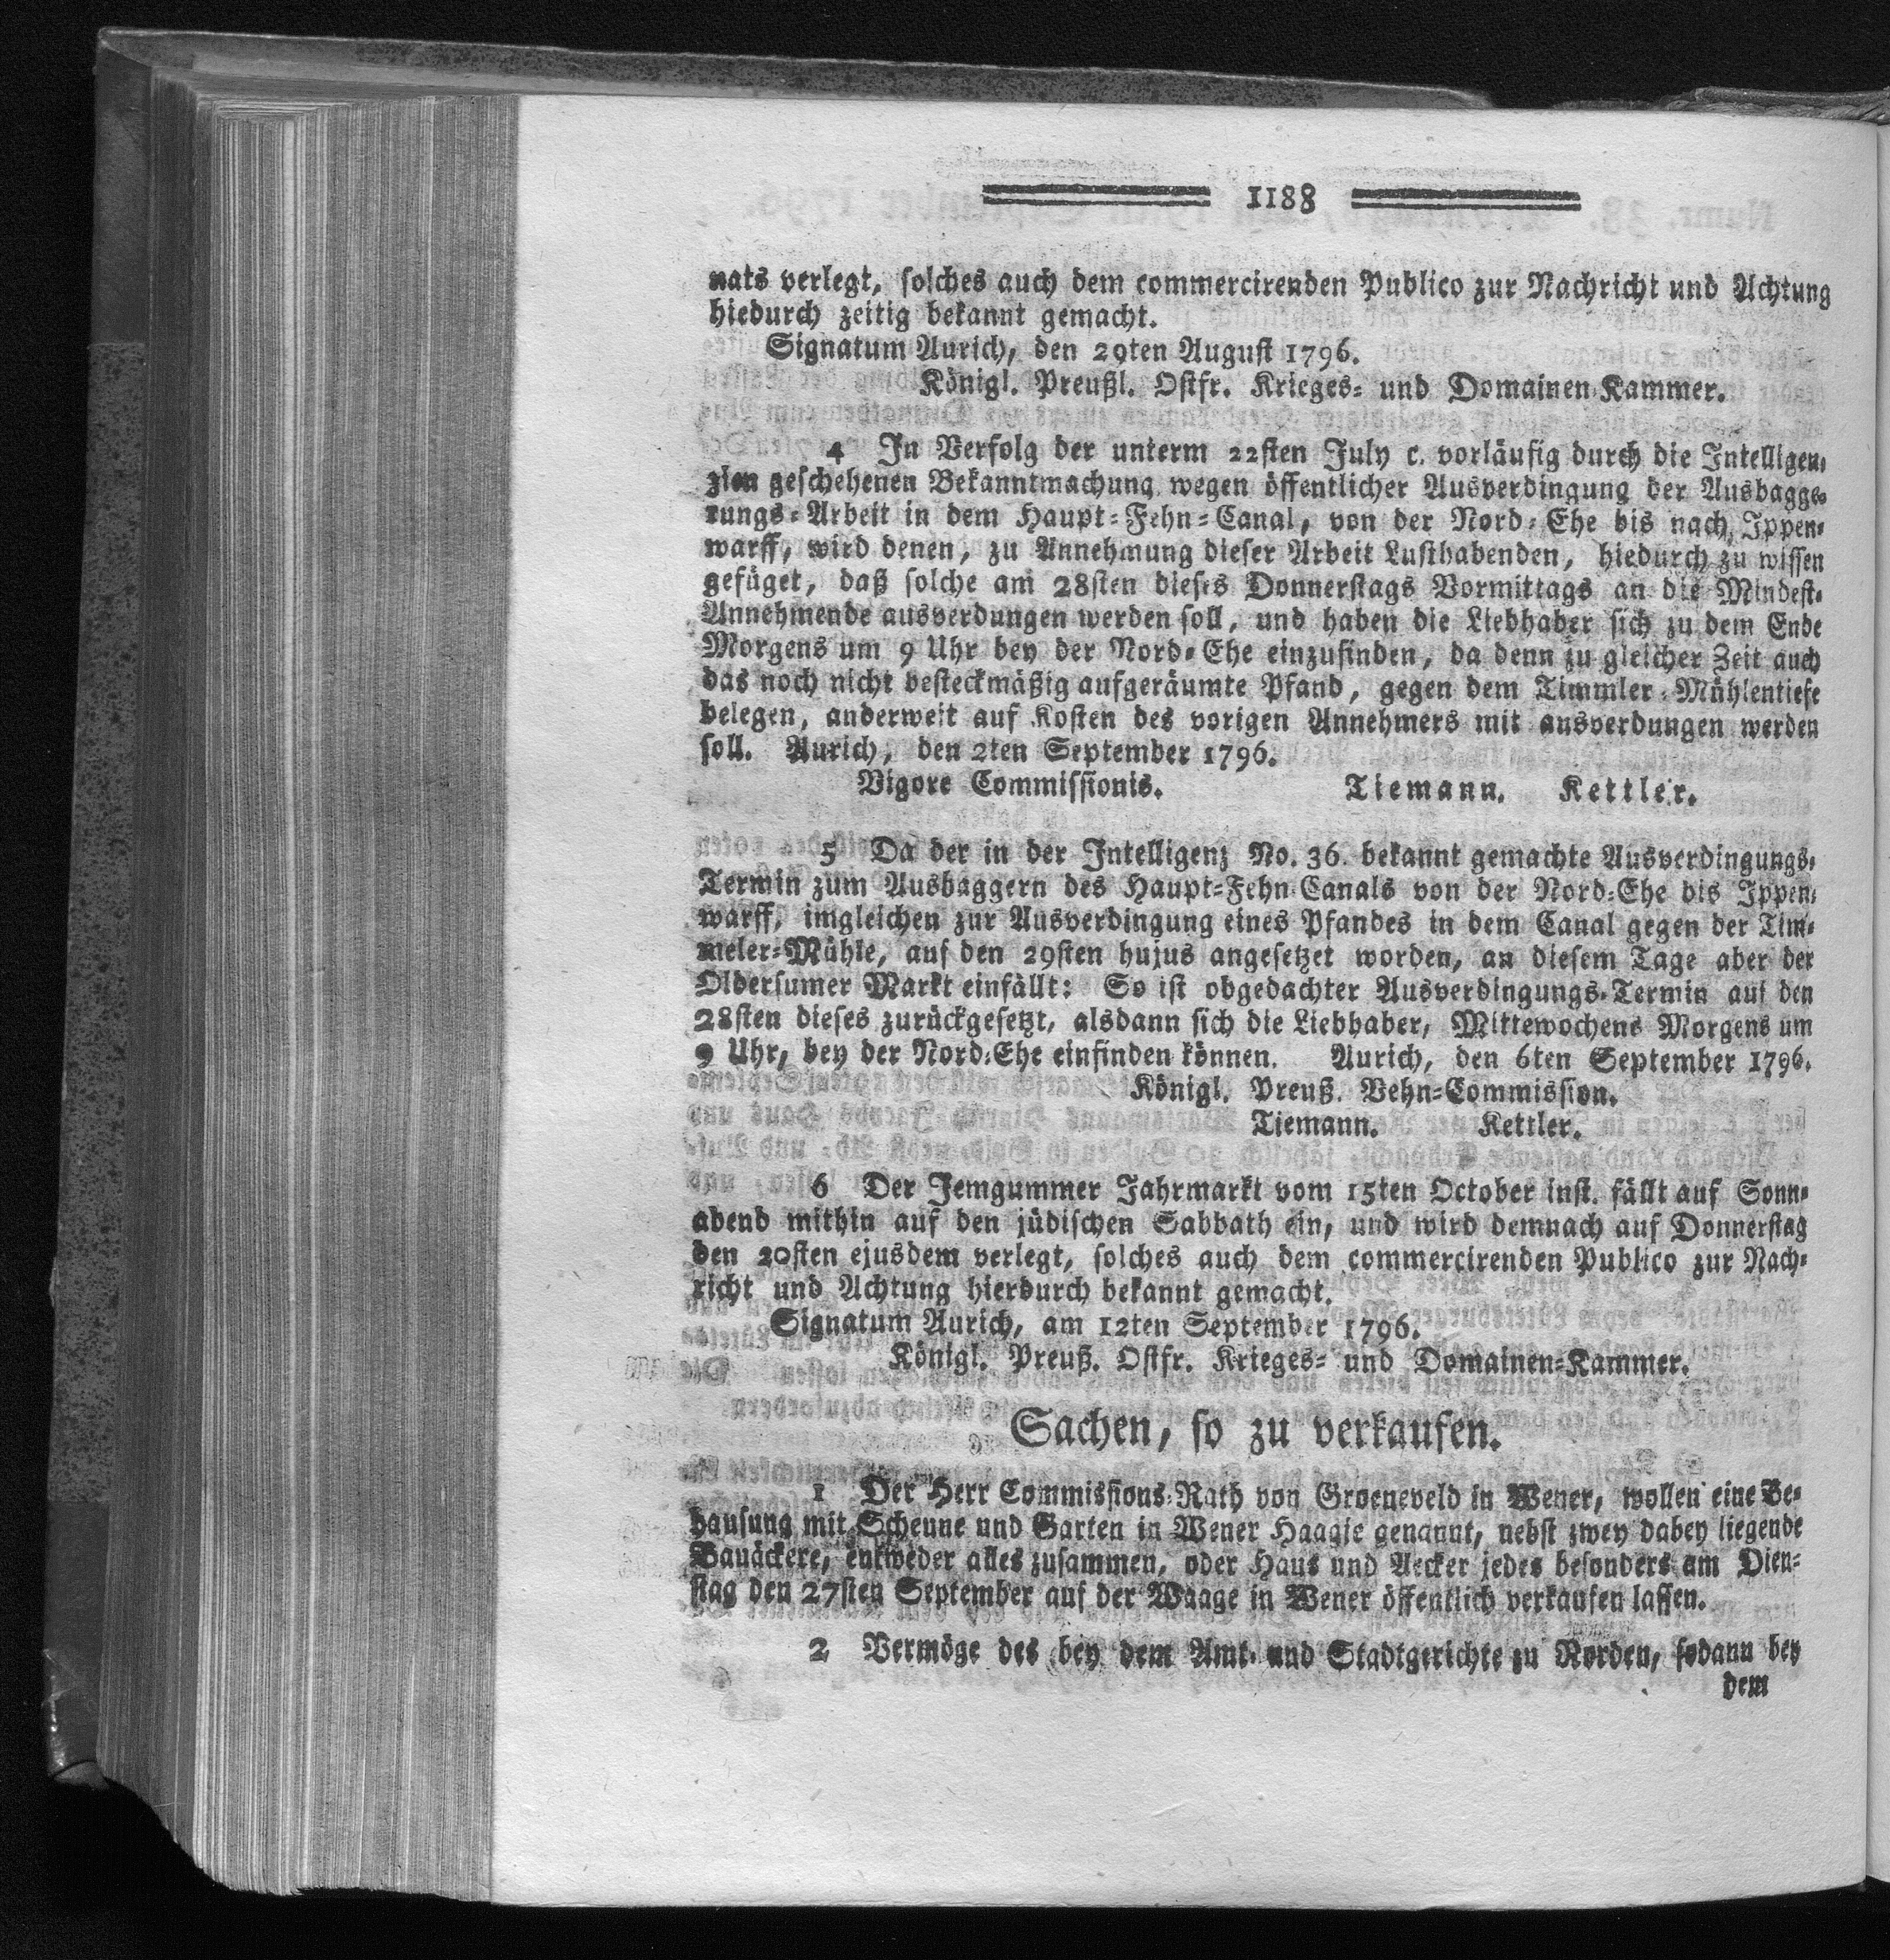 1188
nats verlegt, solches auch dem commercirenden Publico zur Nachricht und Achtung
hiedurch zeitig bekannt gemacht.
Signatum Aurich, den 29ten August 1796.
Königl. Preußl. Ostfr. Krieges- und Domainen Kammer.
4 In Verfolg der unterm 22sten July c. vorläufig durch die Intelligen-
zien geschehenen Bekanntmachung wegen öffentlicher Ausverdingung der Ausbagge-
rungs-Arbeit in dem Haupt-Fehn-Canal, von der Nord-Ehe bis nach Ippen-
warff, wird denen, zu Annehmung dieser Arbeit Lusthabenden, hiedurch zu wissen
gefüget, daß solche am 28sten dieses Donnerstags Vormittags an die Mindest-
Annehmende ausverdungen werden soll, und haben die Liebhaber sich zu dem Ende
Morgens um 9 Uhr bey der Nord-Ehe einzufinden, da denn zu gleicher Zeit auch
das noch nicht besteckmäßig aufgeräumte Pfand, gegen dem Timmler-Mühlentiefe
belegen, anderweit auf Kosten des vorigen Annehmers mit ausverdungen werden
soll. Aurich, den 2ten September 1796.
Vigore Commissionis. Tiemann. Kettler.
5 Da der in der Intelligenz No. 36. bekannt gemachte Ausverdingungs-
Termin zum Ausbaggern des Haupt-Fehn-Canals von der Nord-Ehe bis Ippen-
warff, imgleichen zur Ausverdingung eines Pfandes in dem Canal gegen der Tim-
meler-Mühle, auf den 29sten hujus angesetzet worden, an diesem Tage aber der
Oldersumer Markt einfällt: So ist obgedachter Ausverdingungs-Termin auf den
28sten dieses zurückgesetzt, alsdann sich die Liebhaber, Mittewochens Morgens um
9 Uhr, bey der Nord-Ehe einfinden können. Aurich, den 6ten September 1796.
Königl. Preuß. Vehn-Commission.
Tiemann. Kettler.
6 Der Jemgummer Jahrmarkt vom 15ten October inst. fällt auf Sonn-
abend mithin auf den jüdischen Sabbath ein, und wird demnach auf Donnerstag
den 20sten ejusdem verlegt, solches auch dem commercirenden Publico zur Nach-
richt und Achtung hierdurch bekannt gemacht.
Signatum Aurich, am 12ten September 1796.
Königl. Preuß. Ostfr. Krieges- und Domainen-Kammer.
Sachen, so zu verkaufen.
1 Der Herr Commissions-Rath von Groeneveld in Wener, wollen eine Be-
hausung mit Scheune und Garten in Wener Haagje genannt, nebst zwey dabey liegende
Bauäckere, entweder alles zusammen, oder Haus und Aecker jedes besonders am Dien-
stag den 27sten September auf der Waage in Wener öffentlich verkaufen lassen.
2 Vermöge des bey dem Amt- und Stadtgerichte zu Norden, sodann bey
dem